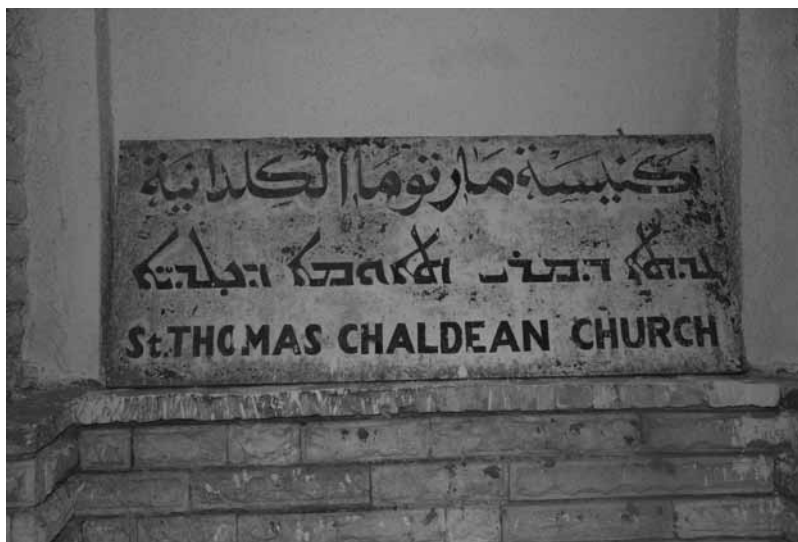 كَنيسَة مَار تومَا الكِلدانيَة
ܥܕܬܐ ܕܡܪܝ ܬܐܘܡܐ ܕܟܠܕܝ̈ܐ
St. THOMAS CHALDEAN CHURCH